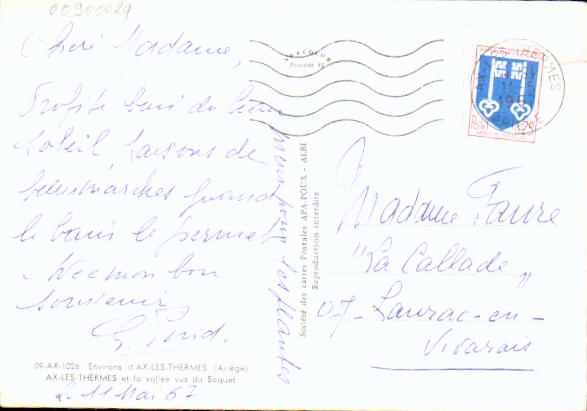 00900029
Chère Madame,
Profite bien du beau
soleil, faisons de
belles marches quand
le bain le permet
Avec mon bon
souvenir
G.
merci pour ses plantes
09-AX-1026 Environs d'AX-LES-THERMES (Ariège)
AX-LES-THERMES et la vallée vus du Saquet
Le 11 Mai 67
Société des cartes Postales APA-POUX - ALBI
Reproduction interdite
APACOLOR
Procédé
AX-LES-THERMES
ARIEGE
Madame Faure
"La Callade"
07-Laurac-en-
Vivarais